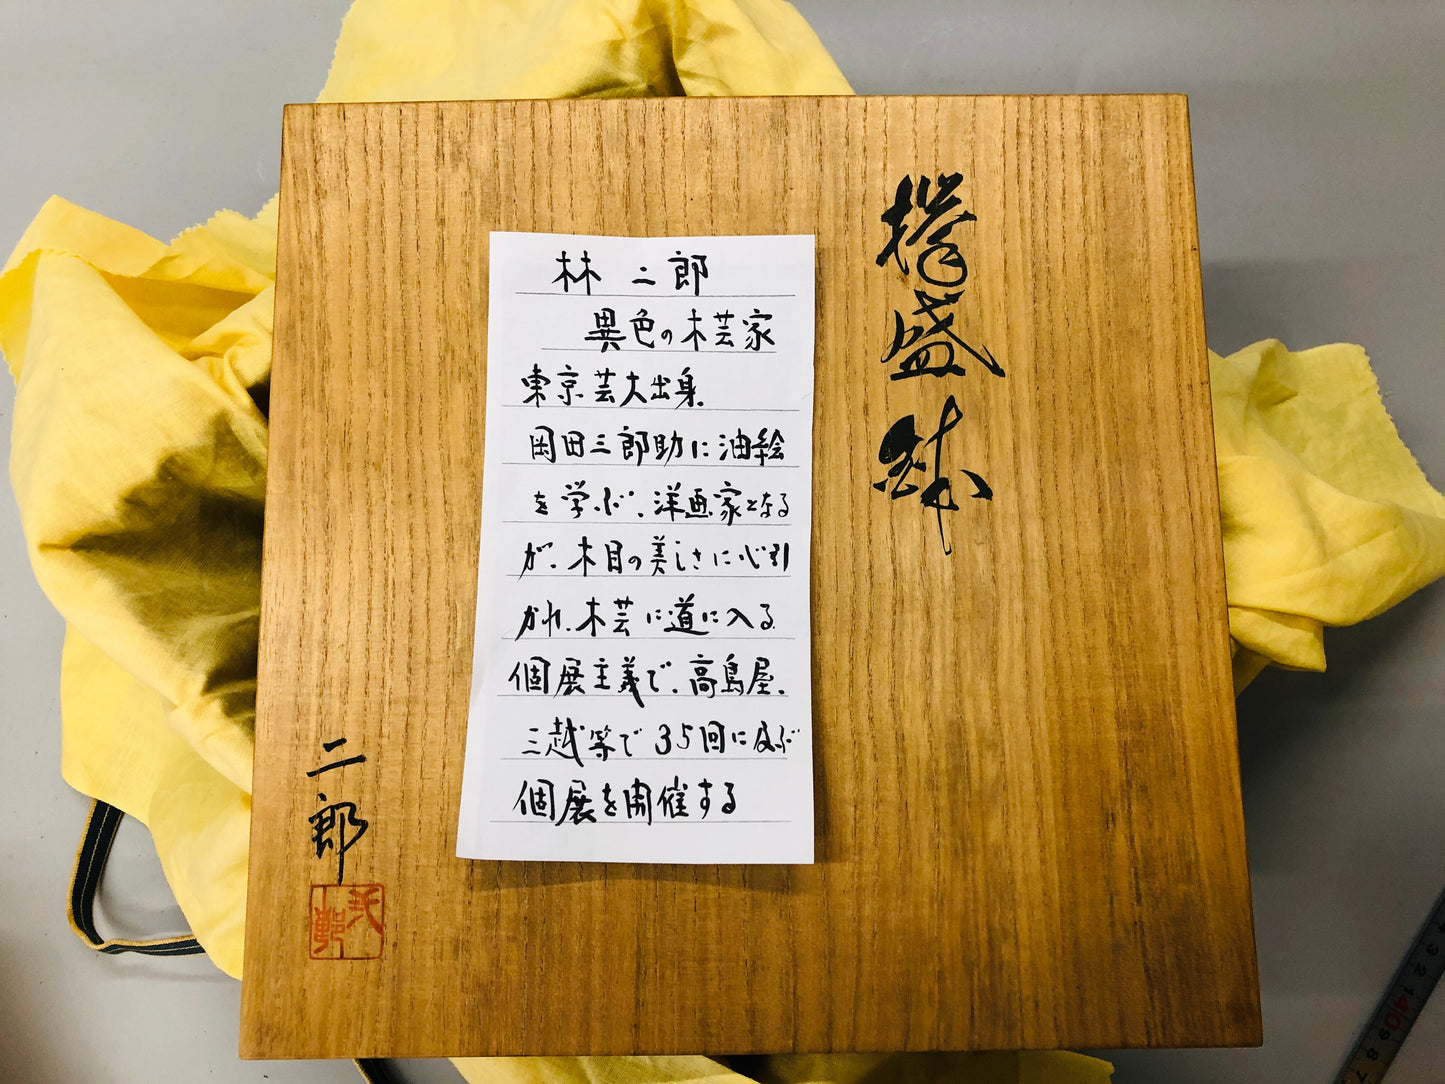 欅盛鉢
林二郎
異色の木芸家
東京芸大出身.
岡田三郎助に油絵
を学ぶ、洋画家となる
が、木目の美しさに心引
かれ、木芸に道に入る.
個展主義で、高島屋、
三越等で35回に及ぶ
個展を開催する
二郎